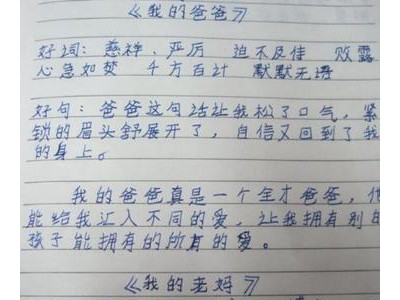 《我的爸爸》
好词：慈祥、严厉 迫不及待 败露
心急如焚 千方百计 默默无语
好句：爸爸这句话让我松了口气，紧
锁的眉头舒展开了，自信又回到了我
的身上。
我的爸爸真是一个全才爸爸，他
能给我汇入不同的爱，让我拥有别的
孩子能拥有的所有的爱。
《我的老妈》